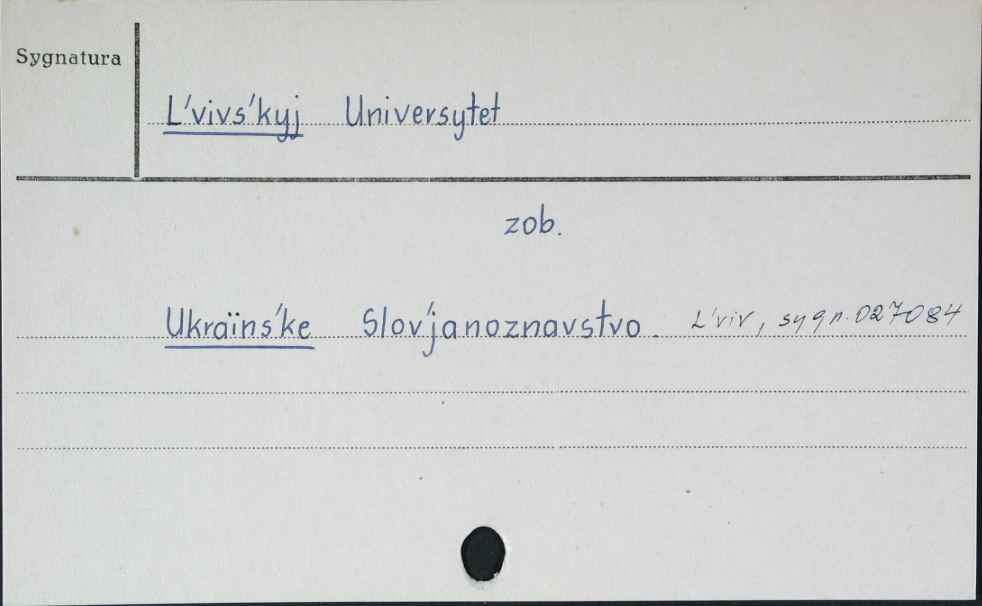 Sygnatura
L'vivs'kyj Universytet
zob.
Ukraïns'ke Slov'janoznavstvo. L'viv, sygn. 027084